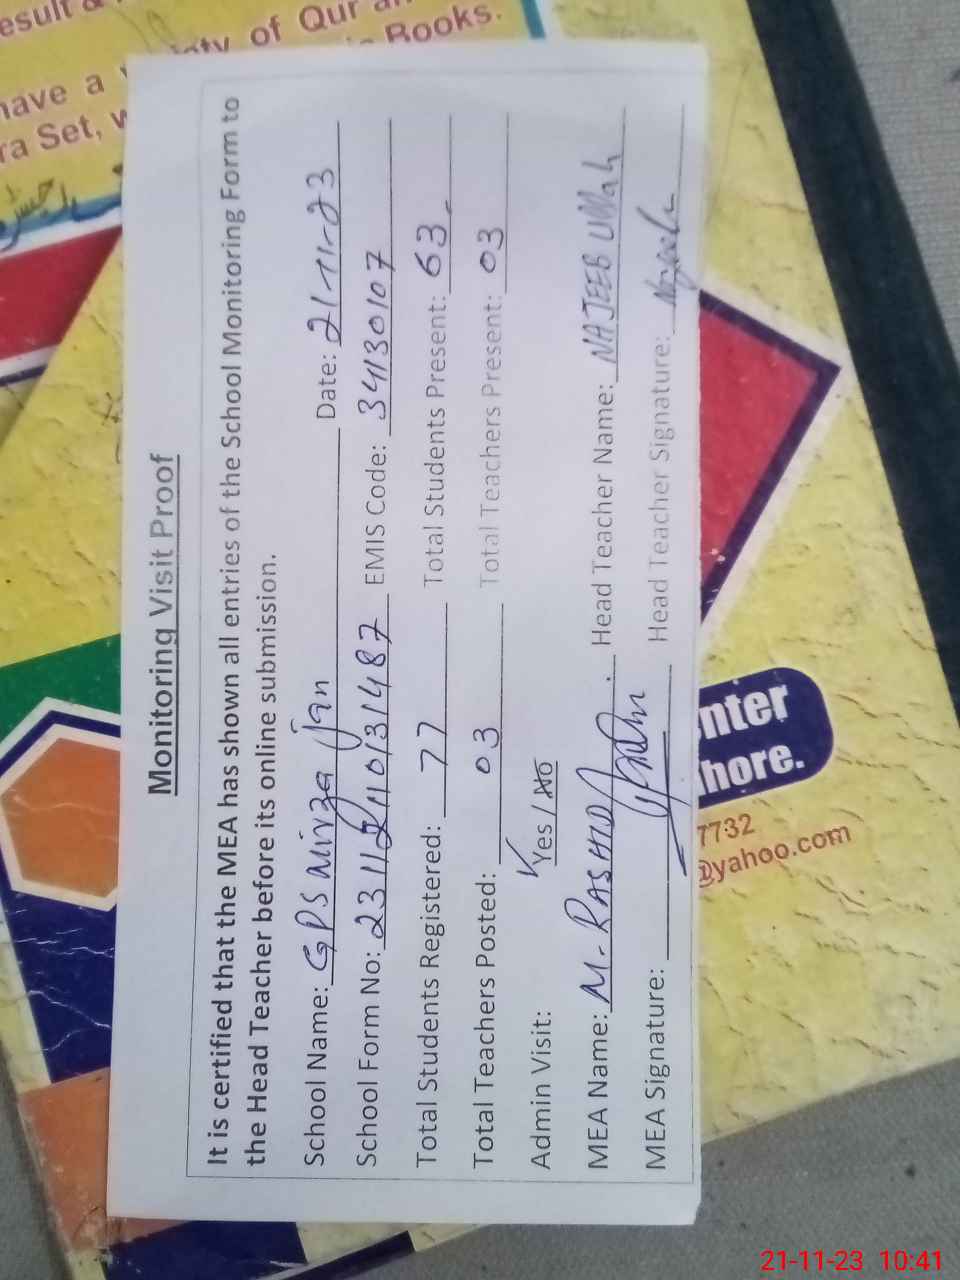 Monitoring Visit Proof
It is certified that the MEA has shown all entries of the School Monitoring Form to
the Head Teacher before its online submission.
School Name: GPS Mirza Jan Date: 21-11-23
School Form No: EMIS Code: 34130107
Total Students Registered: 77 Total Students Present: 63
Total Teachers Posted: 03 Total Teachers Present: 03
Admin Visit: Yes / No
MEA Name: M. RASHID Head Teacher Name: NAJEEB Ullah
MEA Signature: Head Teacher Signature:
have a
of Qur
Books.
ra Set,
nter
hore.
7732
@yahoo.com
21-11-23 10:41